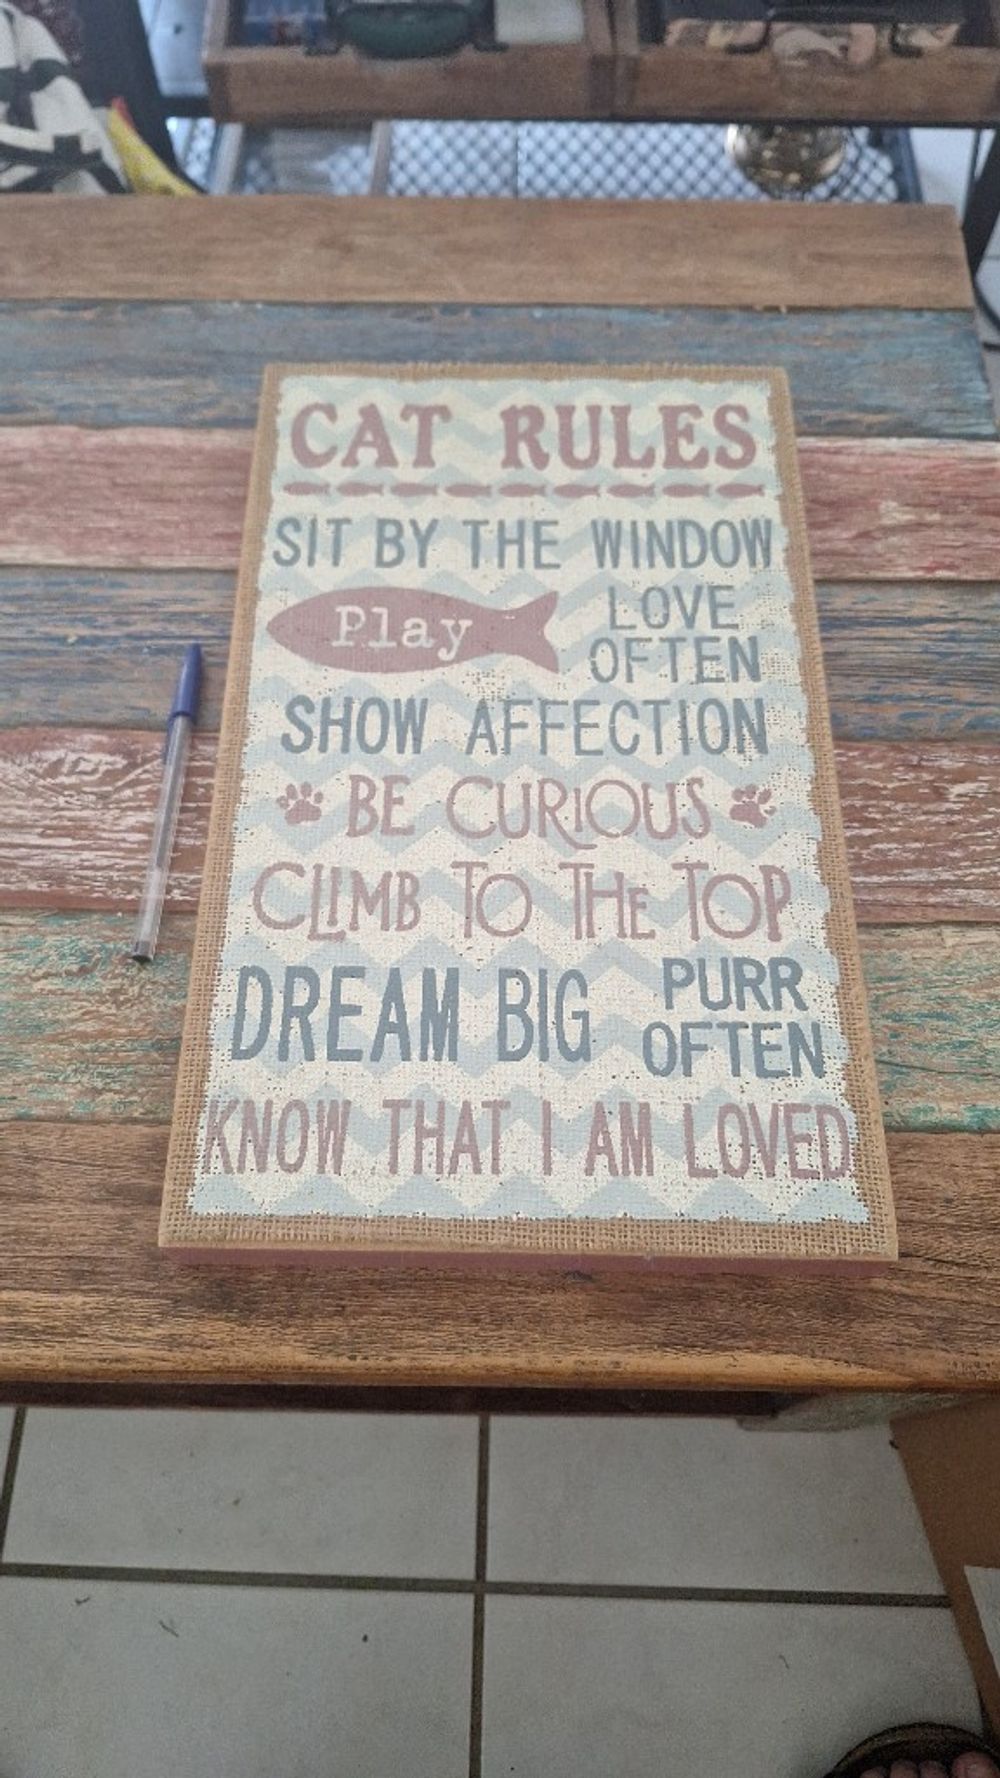 CAT RULES
SIT BY THE WINDOW
Play
LOVE
OFTEN
SHOW AFFECTION
BE CURIOUS
CLIMB TO THE TOP
DREAM BIG
PURR
OFTEN
KNOW THAT I AM LOVED